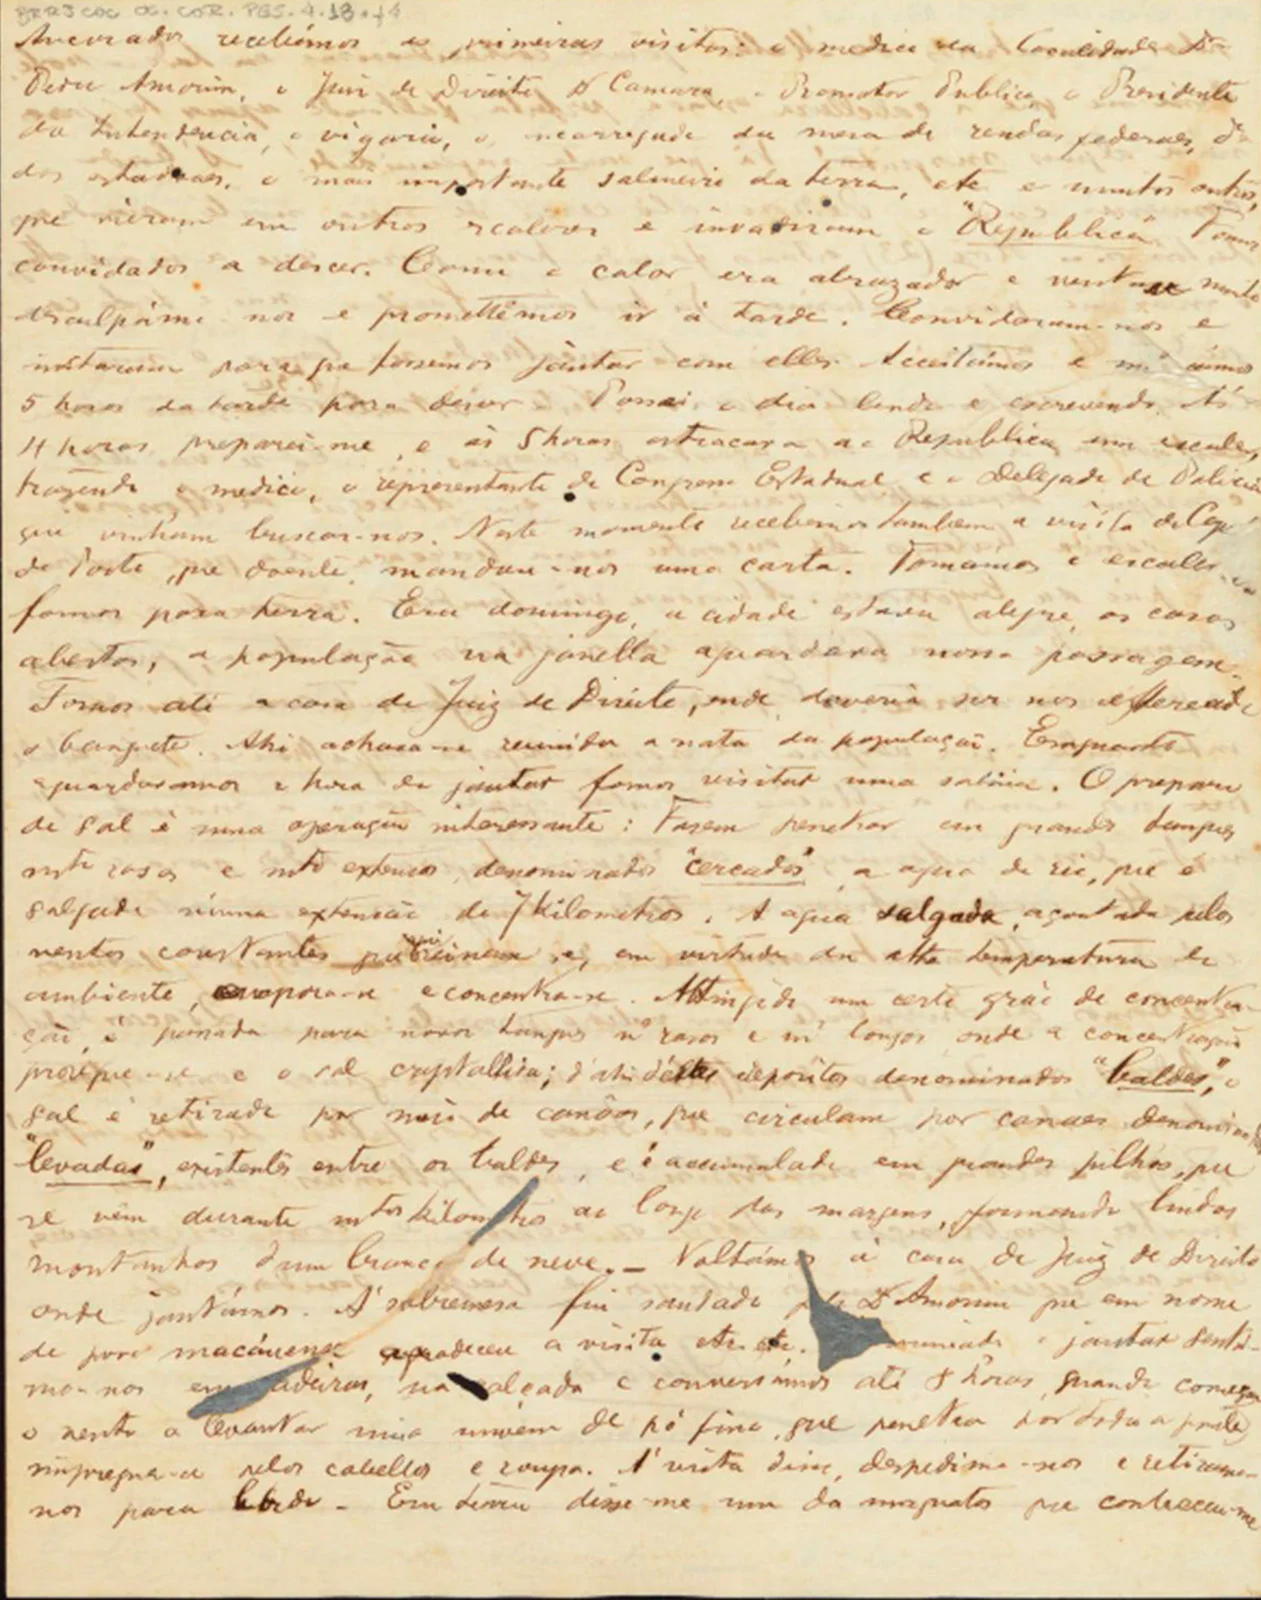 BRRJCOC OC. COR. PES. 4. 18. f4
Ancorados recebemos as primeiras visitas: o medico da localidade Dr
Pedro Amorim, o Juiz de Direito Dr Camara, o Promotor Publico, o Presidente
da Intendencia, o vigario, o encarregado da mesa de rendas federaes, o
dos estadoaes, o mais importante salineiro da terra, etc e muitos outros,
que vieram em outros escaleres e invadiram o "Republica". Fomos
convidados a descer. Como o calor era abrazador e ventasse muito
desculpámo-nos e promettêmos ir á tarde. Convidaram-nos e
instaram para que fossemos jantar com elles. Acceitámos e
5 horas da tarde para descer. Passei o dia lendo e escrevendo. Ás
4 horas preparei-me, e ás 5 horas atracava ao Republica um escaler,
trazendo o medico, o representante do Congresso Estadual e o Delegado de Policia
que vinham buscar-nos. Neste momento recebemos tambem a visita do Capm
do Porto, que doente, mandou-nos uma carta. Tomámos o escaler e
fomos para terra. Era domingo, a cidade estava alegre, as casas
abertas, a população na janella aguardava nossa passagem.
Fomos até a casa do Juiz de Direito, onde deveria ser nos offerecido
o banquete. Ahi achava-se reunida a nata da população. Emquanto
aguardavamos a hora do jantar fomos visitar uma salina. O preparo
do sal é uma operação interessante: Fazem penetrar em grandes tanques
mto rasos e mto extensos, denominados "cercados", a agua do rio, que é
salgada n'uma extensão de 7 kilometros. A agua salgada, açoutada pelos
ventos constantes que reinam se, em virtude da alta temperatura do
ambiente, evapora-se e concentra-se. Attingido um certo gráo de concentra-
ção, é passada para novos tanques mo rasos e mo longos onde a concentração
prosegue-se e o sal crystallisa; d'ahi destes depositos denominados "baldes", o
sal é retirado por meio de canôas, que circulam por canaes denominados
"levadas", existentes entre os baldes, e é accumulado em grandes pilhas, que
se vêm durante mtos kilometros ao longo das margens, formando lindas
montanhas d'um branco de neve. _ Voltámos á casa do Juiz de Direito
onde jantámos. Á sobremesa fui saudado pelo Dr Amorim que em nome
do povo macáuense agradeceu a visita etc etc. o jantar sentá-
mo-nos em cadeiras, na calçada e conversámos até 8 horas, quando começou
o vento a levantar uma nuvem de pó fino, que penetra por toda a parte,
impregna-se pelos cabellos e roupa. Á vista disso, despedimo-nos e retiramo-
nos para bordo - Em terra disse-me um dos magnatas que conheceu-me